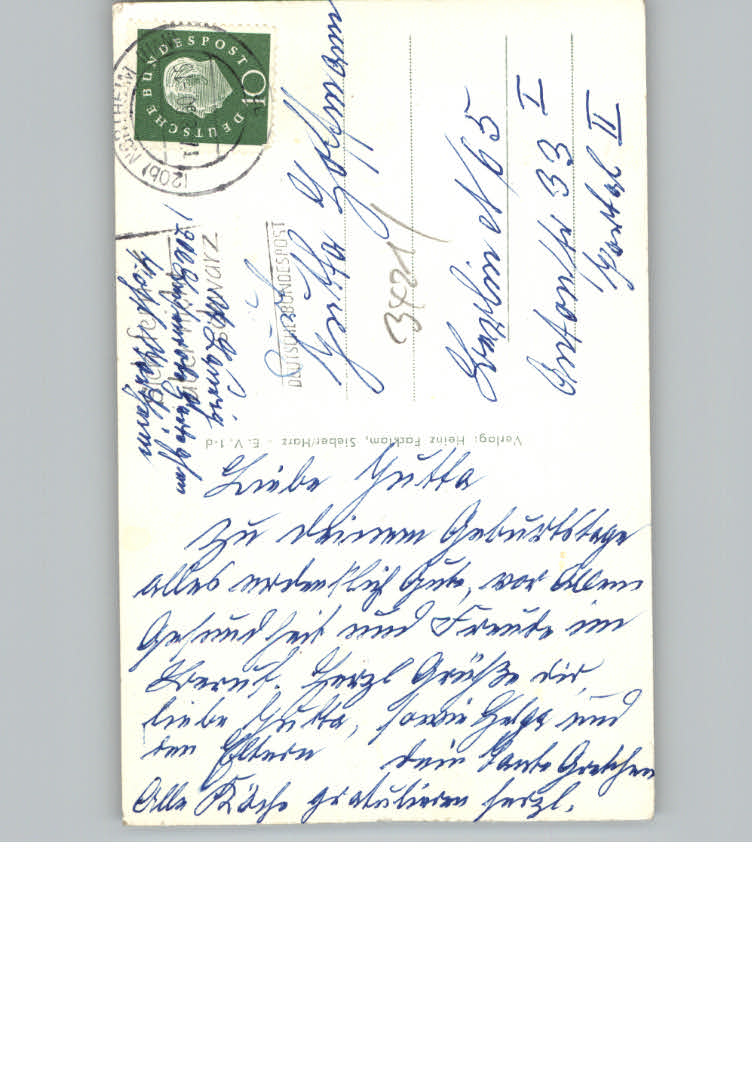 DEUTSCHE BUNDESPOST
10
(20b) NORTHEIM
DEUTSCHE BUNDESPOST
schwarz
Jutta Hoffmann
3421/
Berlin N 65
Antonstr 33 I
Portal II
Verlag: Heinz Facklam, Sieber/Harz - E. V. 1-d
Liebe Jutta
Zu deinem Geburtstage
alles erdenklich Gute, vor Allem
Gesundheit und Freude im
Beruf. Herzl Grüße dir,
liebe Jutta, sowie Helga und
den Eltern dein Tante Gretchen
Alle gratulieren herzl.